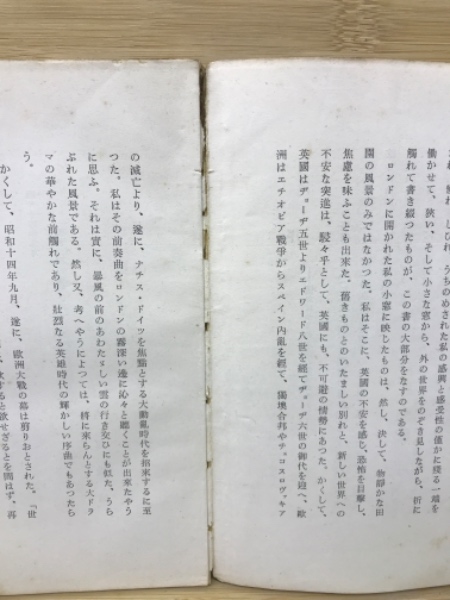 働かせて、狹い、そして小さな窓から、外の世界をのぞき見しながら、折に
觸れて書き綴つたものが、この書の大部分をなすのである。
ロンドンに開かれた私の小窓に映したものは、然し、決して、物靜かな田
園の風景のみではなかつた。私はそこに、英國の不安を感じ、恐怖を目擊し、
焦慮を味ふことも出來た。舊きものとのいたましい別れと、新しい世界への
不安な突進は、駸々乎として、英國にも、不可避の情勢にあつた。かくして、
英國はヂョーヂ五世よりエドワード八世を經てヂョーヂ六世の御代を迎へ、歐
洲はエチオピア戰爭からスペイン內亂を經て、獨墺合邦やチェコスロヴァキア
の滅亡より、遂に、ナチス・ドイツを焦點とする大動亂時代を招來するに至
つた。私はその前奏曲をロンドンの霧深い邊に沁々と聽くことが出來たやう
に思ふ。それは實に、暴風の前のあわたゞしい雲の行き交ひにも似た、うら
ぶれた風景である。然し又、考へやうによつては、將に來らんとする大ドラ
マの華やかな前觸れであり、壯烈なる英雄時代の輝かしい序曲でもあつたら
う。
かくして、昭和十四年九月、遂に、歐洲大戰の幕は剪りおとされた。「世